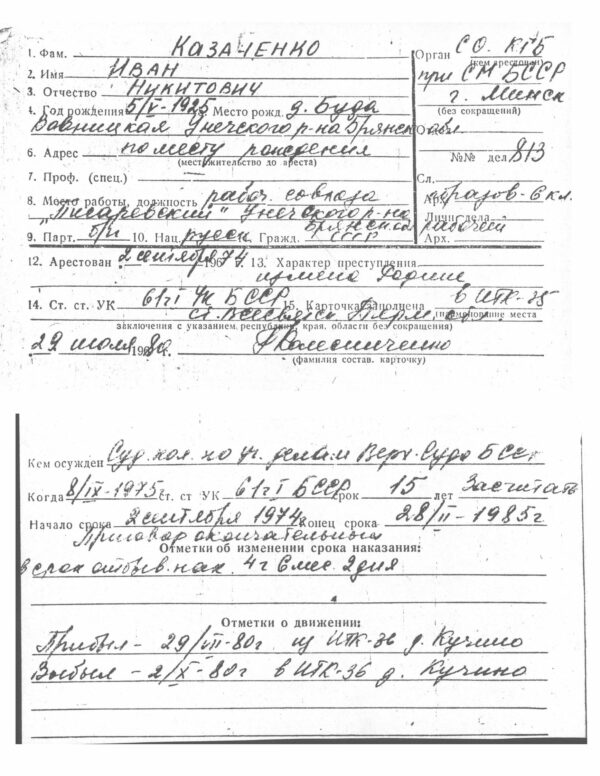 1. Фам. КАЗАЧЕНКО
Орган СО. КГБ
(кем арестован)
2. Имя ИВАН
при СМ БССР
3. Отчество НИКИТОВИЧ
г. Минск
(без сокращений)
4. Год рождения 5/V-1925 Место рожд. д. Буда
Вовницкая Унечского р-на Брянск обл
6. Адрес по месту рождения
(местожительство до ареста)
№№ дел 813
7. Проф. (спец.)
Сл.
8. Место работы, должность рабоч. совхоза
образов-6 кл.
„Писаревский" Унечского р-на
Личн. дела рабочий
Брянской
9. Парт. б/п 10. Нац. русск Гражд. СССР
Арх.
12. Арестован 2 сентября 1974 г. 13. Характер преступления
измена Родине
14. Ст. ст. УК 61 ч I УК БССР 15. Карточка заполнена в ИТК-35
(наименование места
ст. Всесвятск Перм. о
заключения с указанием республики, края, области без сокращения)
29 июля 1980 г.
(фамилия состав. карточку)
Кем осужден Суд. кол. по уг. делам Верх. Суда БССР
Когда 8/IX-1975 г. ст. УК 61 ч I БССР срок 15 лет Засчитать
Начало срока 2 сентября 1974 г. Конец срока 28/II-1985г
Приговор окончательный
Отметки об изменении срока наказания:
в срок отбыв. нак. 4 г 6 мес. 2 дня
Отметки о движении:
Прибыл - 29/VII-80г из ИТК-36 д. Кучино
Выбыл - 2/X-80г в ИТК-36 д. Кучино